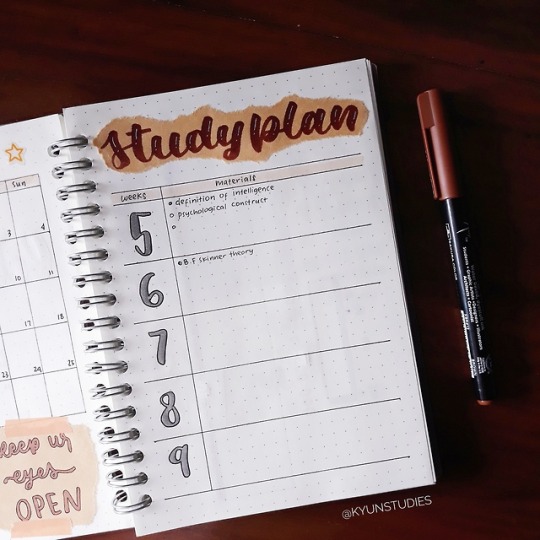 Sun
3 4
10 11
17 18
23 24 25
keep ur
eyes
OPEN
study plan
weeks materials
5 definition of intelligence
psychological construct
6 B.F skinner theory
7
8
9
@KYUNSTUDIES